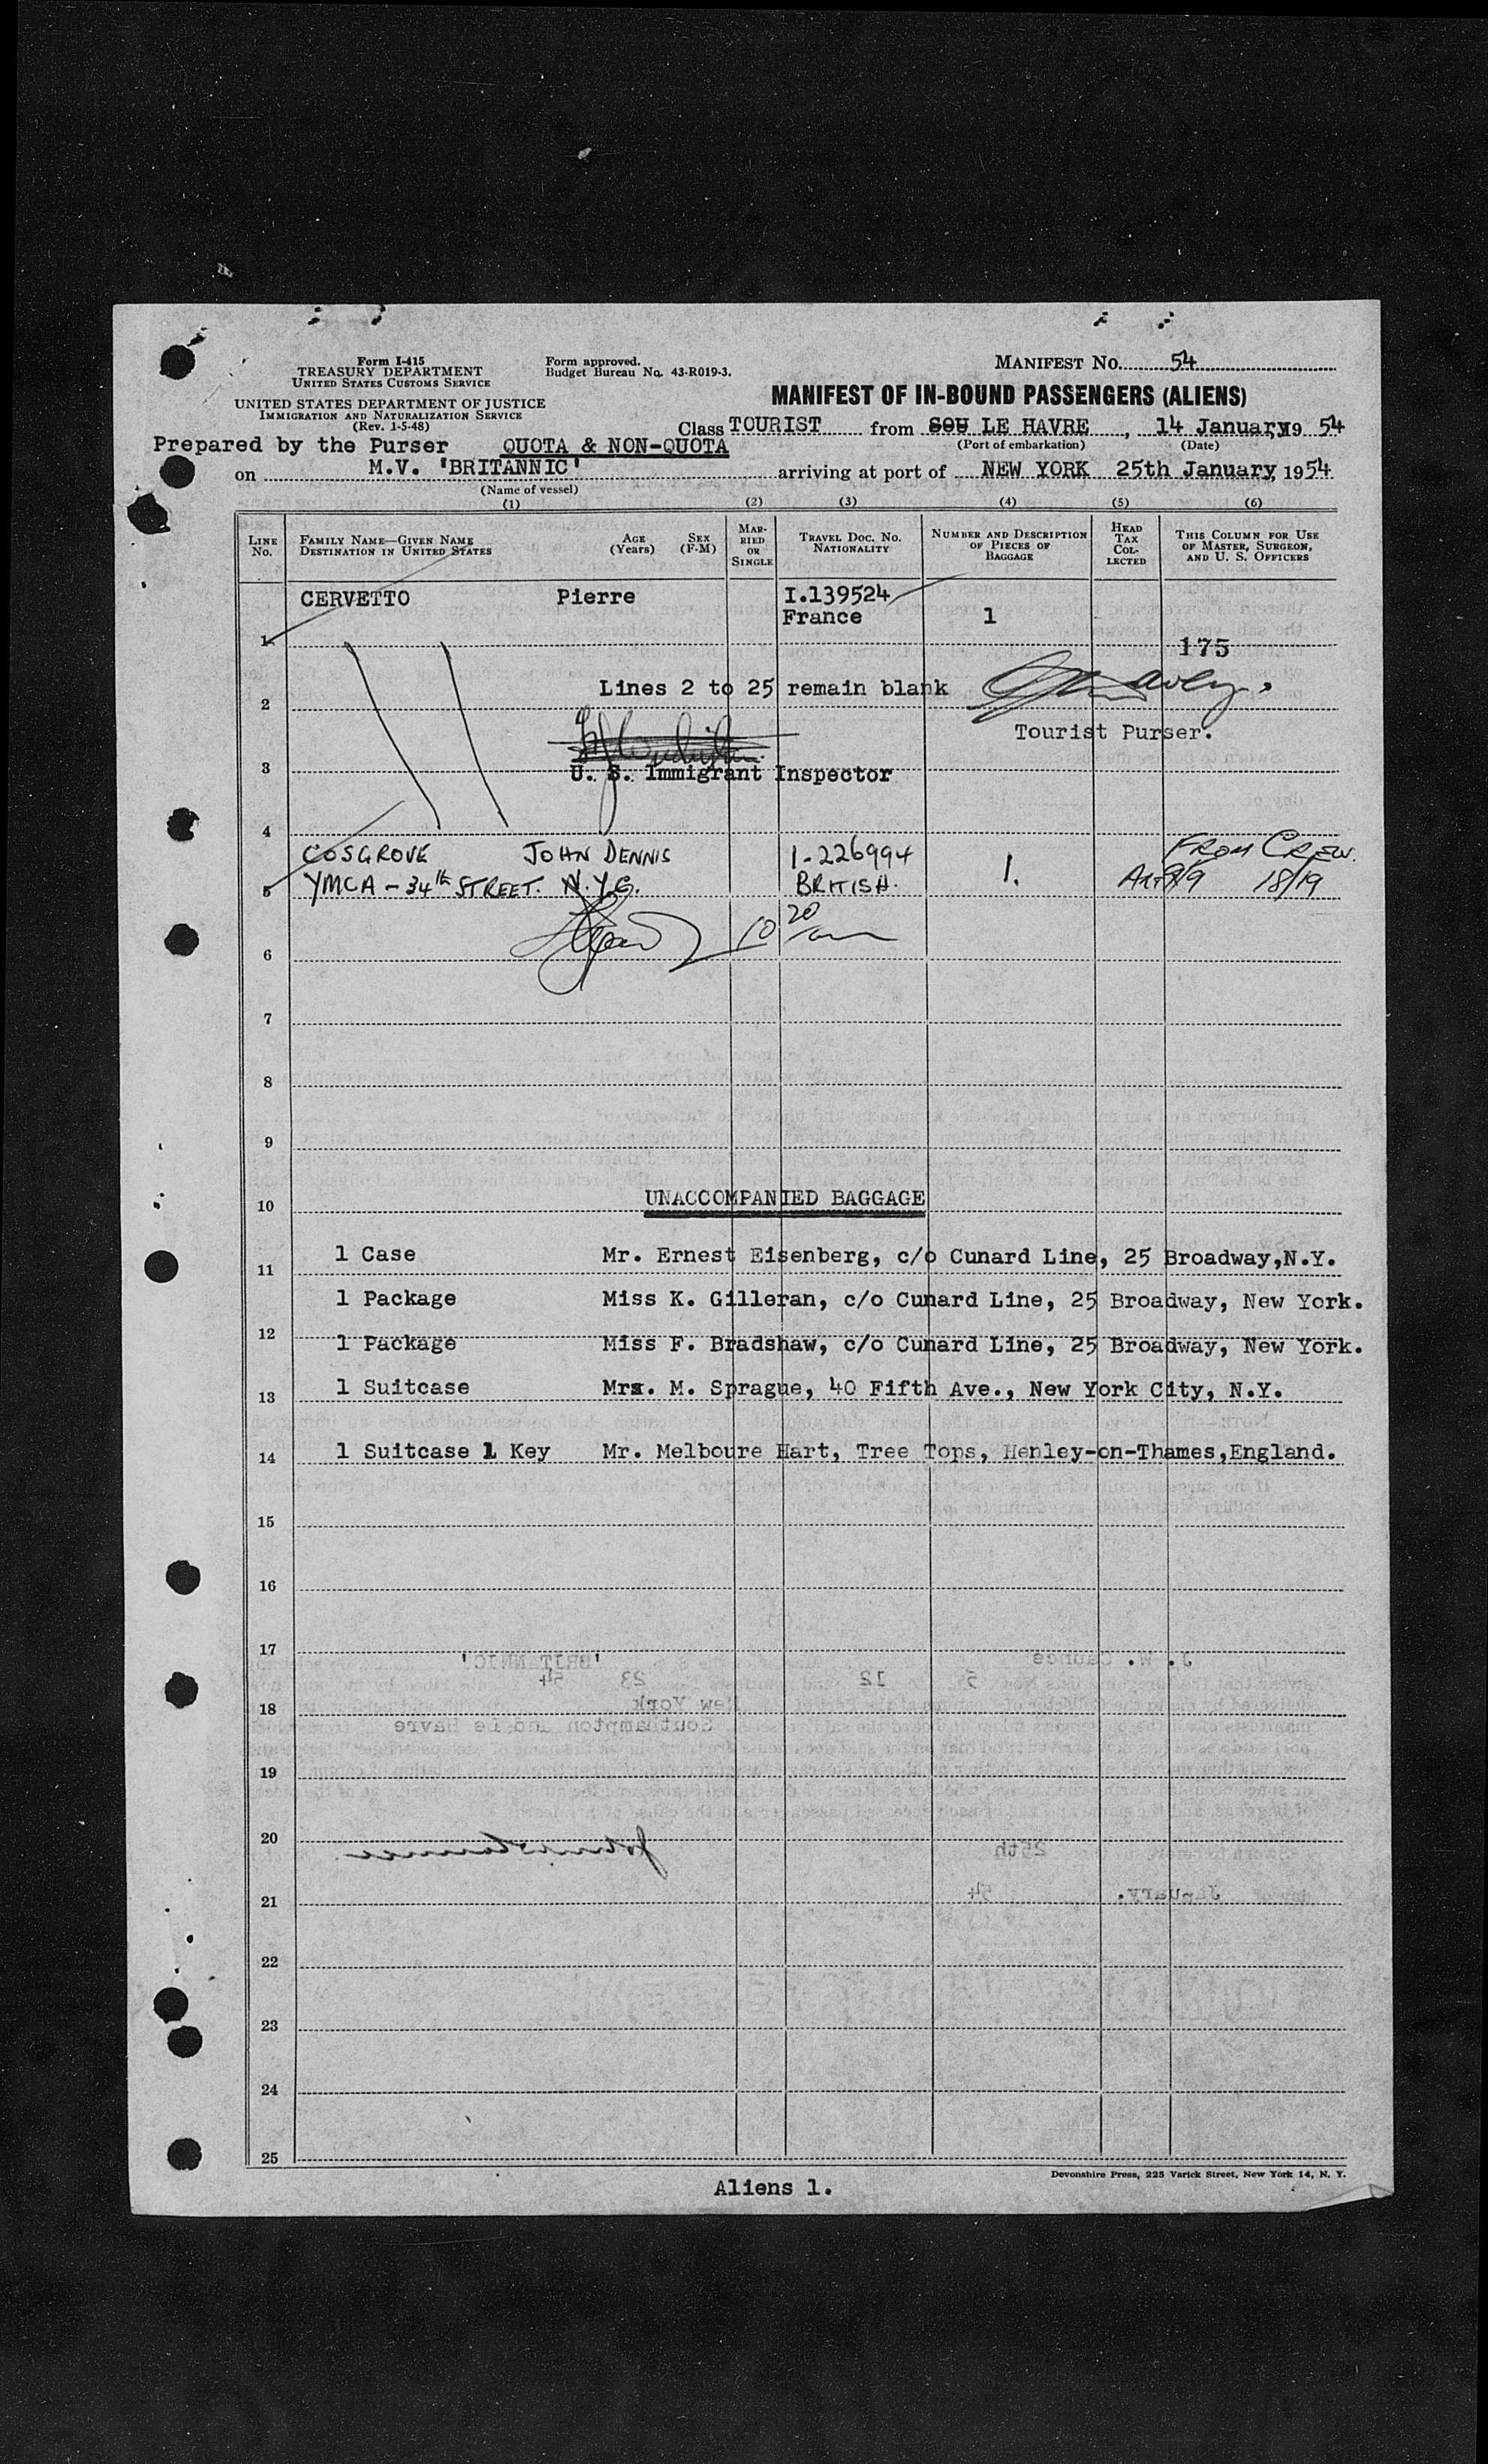 Form I-415
TREASURY DEPARTMENT
UNITED STATES CUSTOMS SERVICE
Form approved.
Budget Bureau No. 43-R019-3.
MANIFEST No. 54
UNITED STATES DEPARTMENT OF JUSTICE
IMMIGRATION AND NATURALIZATION SERVICE
(Rev. 1-5-48)
MANIFEST OF IN-BOUND PASSENGERS (ALIENS)
Class TOURIST from SOU LE HAVRE, 14 January, 19 54
(Port of embarkation) (Date)
Prepared by the Purser QUOTA & NON-QUOTA
on M.V. 'BRITANNIC' arriving at port of NEW YORK 25th January, 1954
(Name of vessel)
(1) (2) (3) (4) (5) (6)
LINE No.
FAMILY NAME—GIVEN NAME
DESTINATION IN UNITED STATES
AGE (Years)
SEX (F-M)
MARRIED OR SINGLE
TRAVEL DOC. NO. NATIONALITY
NUMBER AND DESCRIPTION OF PIECES OF BAGGAGE
HEAD TAX COLLECTED
THIS COLUMN FOR USE OF MASTER, SURGEON, AND U. S. OFFICERS
CERVETTO Pierre I.139524
France 1
1
175
Lines 2 to 25 remain blank
2
Tourist Purser.
3 U. S. Immigrant Inspector
4
COSGROVE JOHN DENNIS 1-226994 FROM CREW.
5 YMCA - 34th STREET. N.Y.C. BRITISH. 1. 18/19
10 20
6
7
8
9
10 UNACCOMPANIED BAGGAGE
11 1 Case Mr. Ernest Eisenberg, c/o Cunard Line, 25 Broadway,N.Y.
1 Package Miss K. Gilleran, c/o Cunard Line, 25 Broadway, New York.
12 1 Package Miss F. Bradshaw, c/o Cunard Line, 25 Broadway, New York.
13 1 Suitcase Mrs. M. Sprague, 40 Fifth Ave., New York City, N.Y.
14 1 Suitcase 1 Key Mr. Melboure Hart, Tree Tops, Henley-on-Thames,England.
15
16
17
J. W. Caunce 'BRITANNIC'
5 12 23 54
18 New York
Southampton and Le Havre
19
20 25th
21 January. 54
22
23
24
25
Devonshire Press, 225 Varick Street, New York 14, N. Y.
Aliens 1.